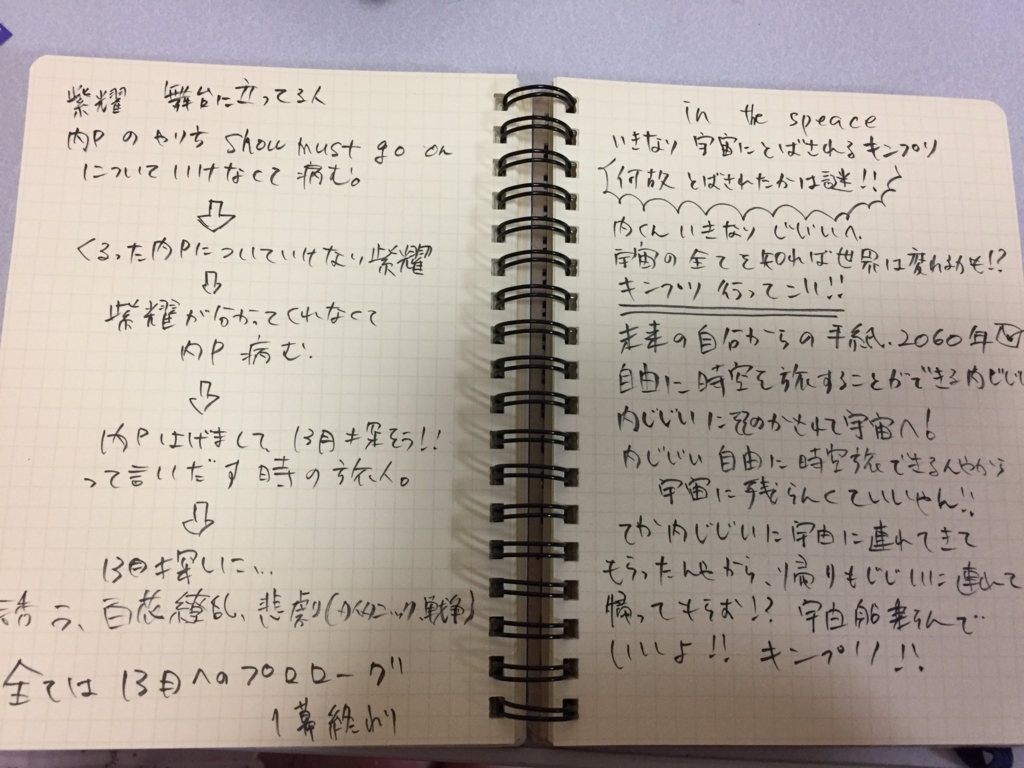 紫耀 舞台に立ってる人
内Pのやり方 Show must go on
についていけなくて病む。
くるった内Pについていけない紫耀
紫耀が分かってくれなくて
内P 病む.
内Pはげまして、13月を探そう!!
って言いだす時の旅人。
13月を探しに...
誘う、百花繚乱、悲劇( 戦争)
全ては13月へのプロローグ
1幕終わり
in the speace
いきなり宇宙にとばされるキンプリ
何故とばされたかは謎!!
内くんいきなりじじいへ、
宇宙の全てを知れば世界は変わるかも!?
キンプリ行ってこい!!
未来の自分からの手紙.2060年
自由に時空を旅することができる内じじい
内じじいにそそのかされて宇宙へ!
内じじい自由に時空旅できるんやから
宇宙に残らんくていいやん!!
てか内じじいに宇宙に連れてきて
もらったんやから、帰りもじじいに連れて
帰ってもらお!? 宇宙船乗らんで
いいよ!! キンプリ!!